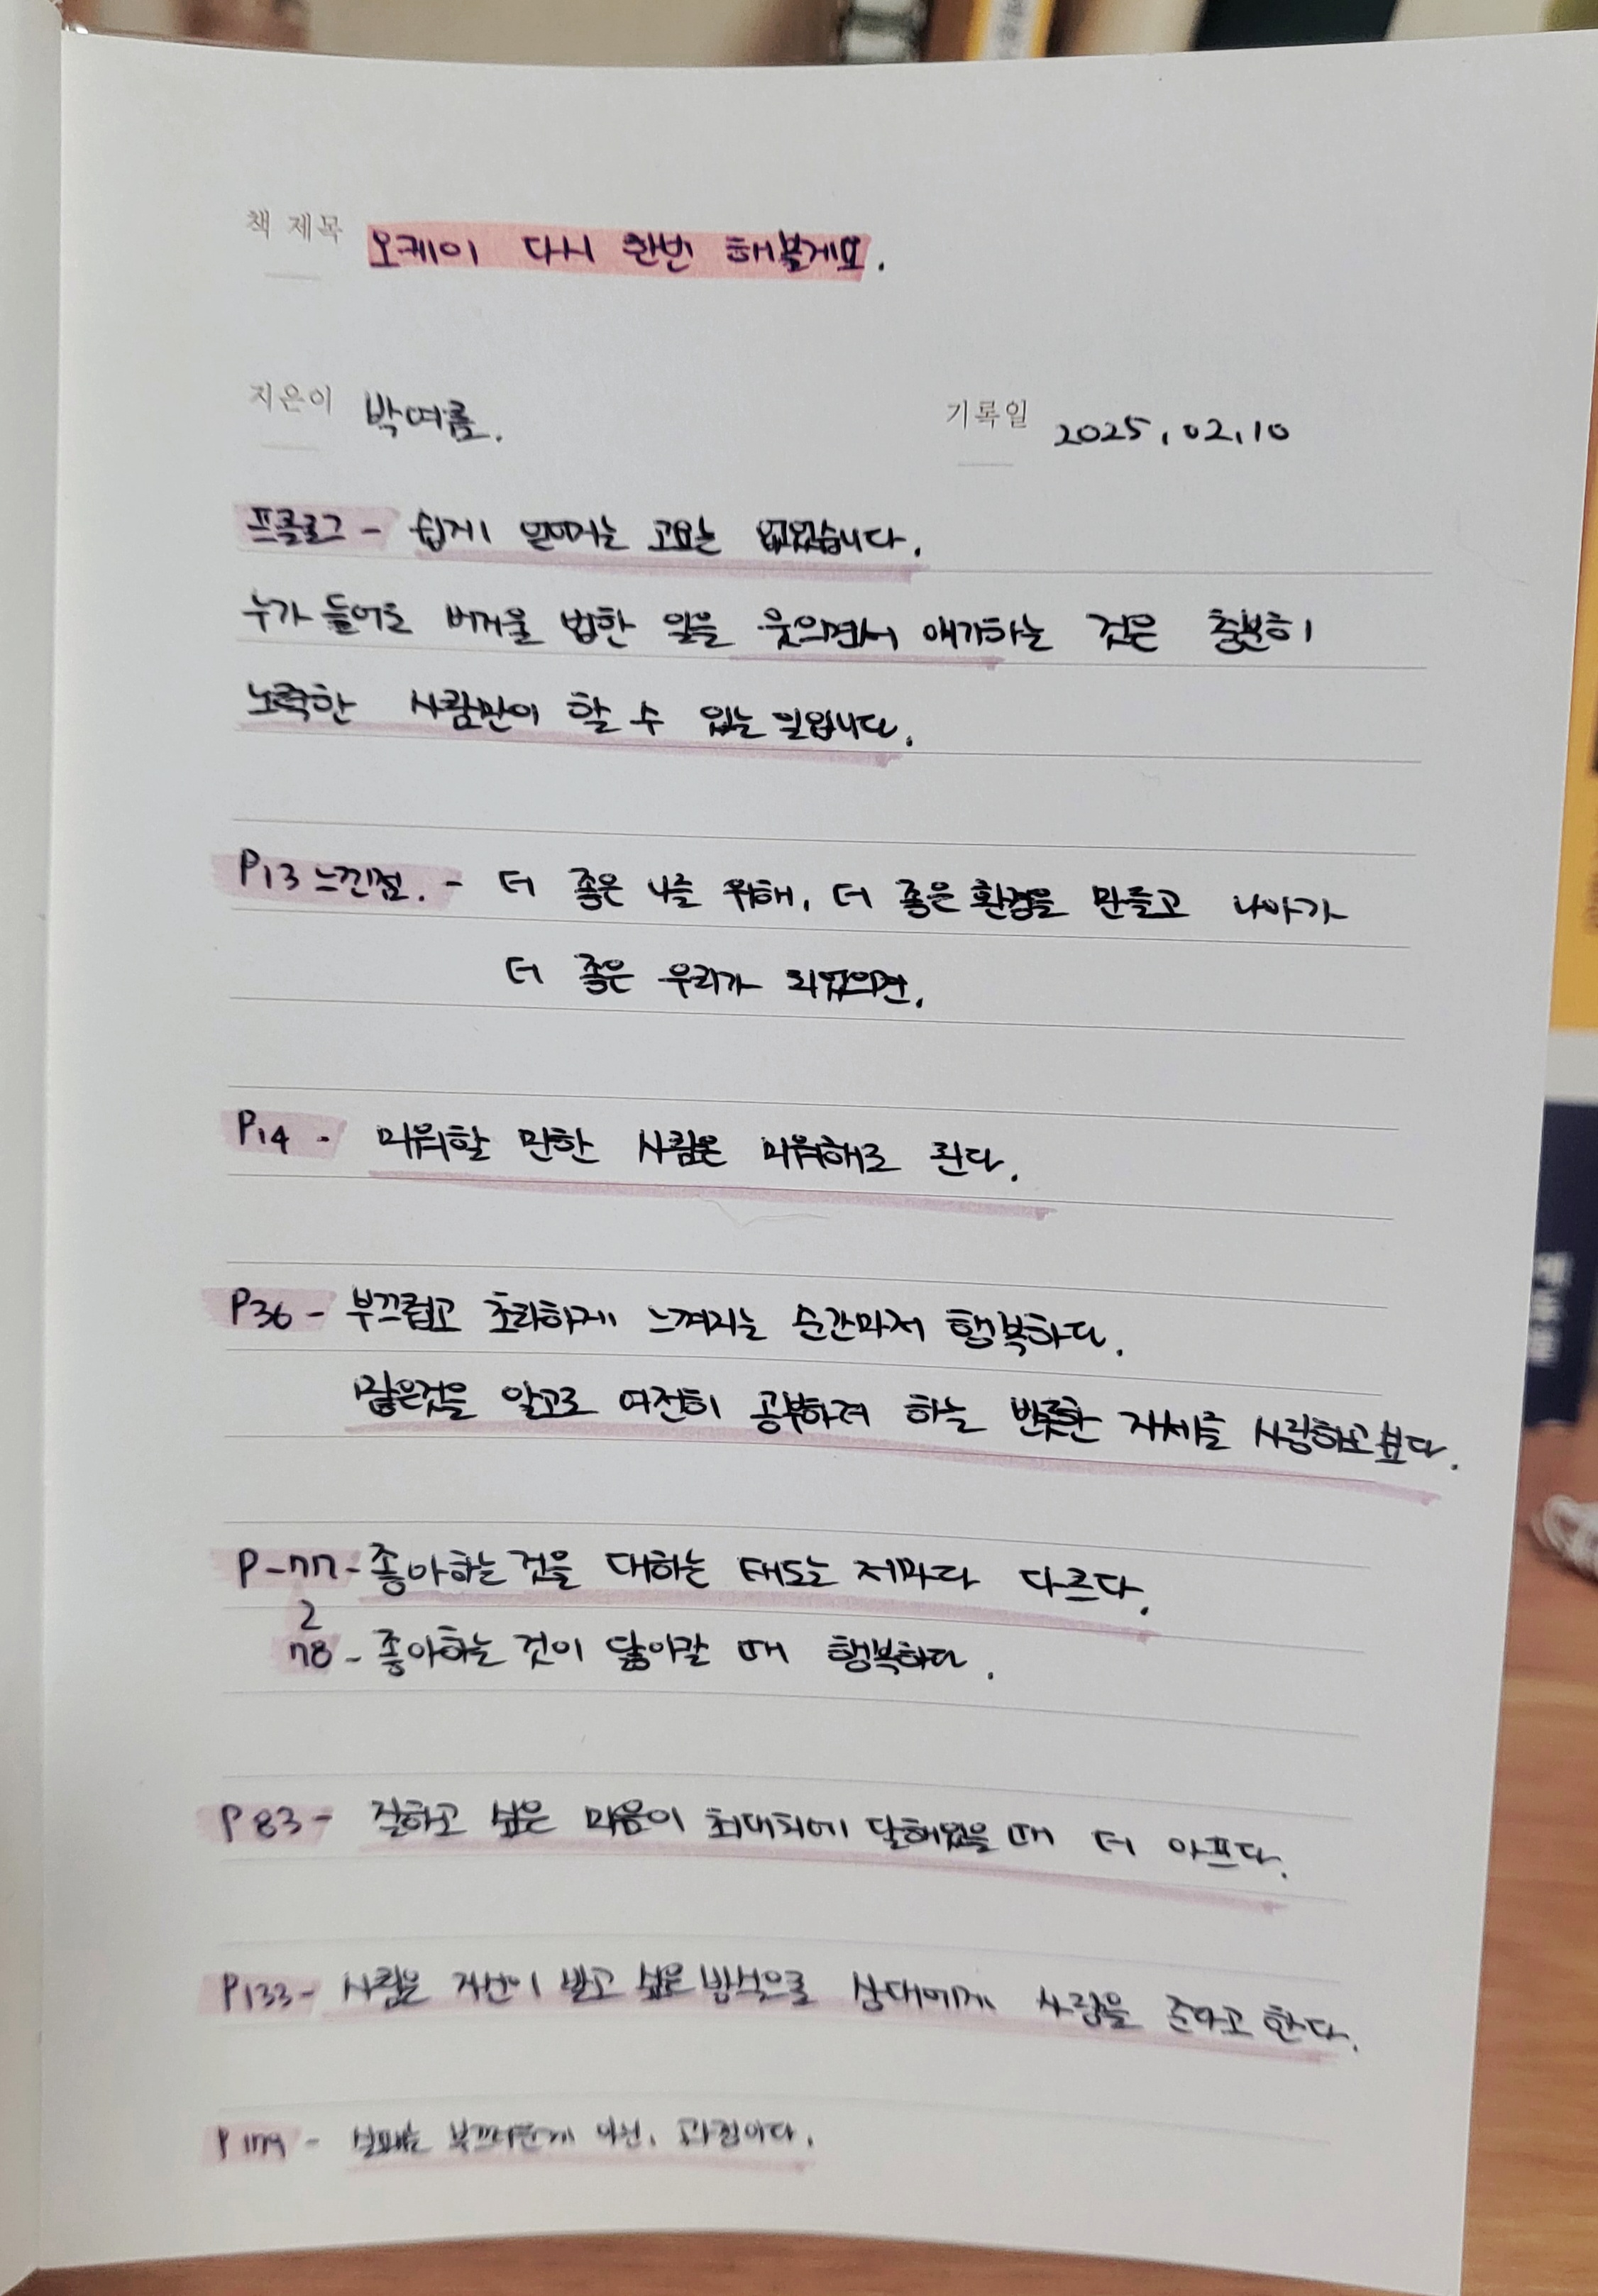 책 제목 오케이 다시 한번 해볼게요.
지은이 박여름. 기록일 2025.02.10
프롤로그 - 쉽게 얻어지는 고요는 없었습니다.
누가 들어도 버거울 법한 일을 웃으면서 얘기하는 것은 충분히
노력한 사람만이 할 수 있는 일입니다.
P13 느낀점. - 더 좋은 나를 위해, 더 좋은 환경을 만들고 나아가
더 좋은 우리가 되었으면.
P14 - 미워할 만한 사람은 미워해도 된다.
P36 - 부끄럽고 초라하게 느껴지는 순간마저 행복하다.
많은것을 알고도 여전히 공부하려 하는 반듯한 자세를 사랑하고 싶다.
P-77- 좋아하는 것을 대하는 태도는 저마다 다르다.
2
78 - 좋아하는 것이 닮아갈 때 행복하다.
P83 - 잘하고 싶은 마음이 최대치에 달해있을 때 더 아프다.
P133- 사람은 자신이 받고 싶은 방식으로 상대에게 사랑을 준다고 한다.
P179 - 실패는 부끄러운게 아닌, 과정이다.